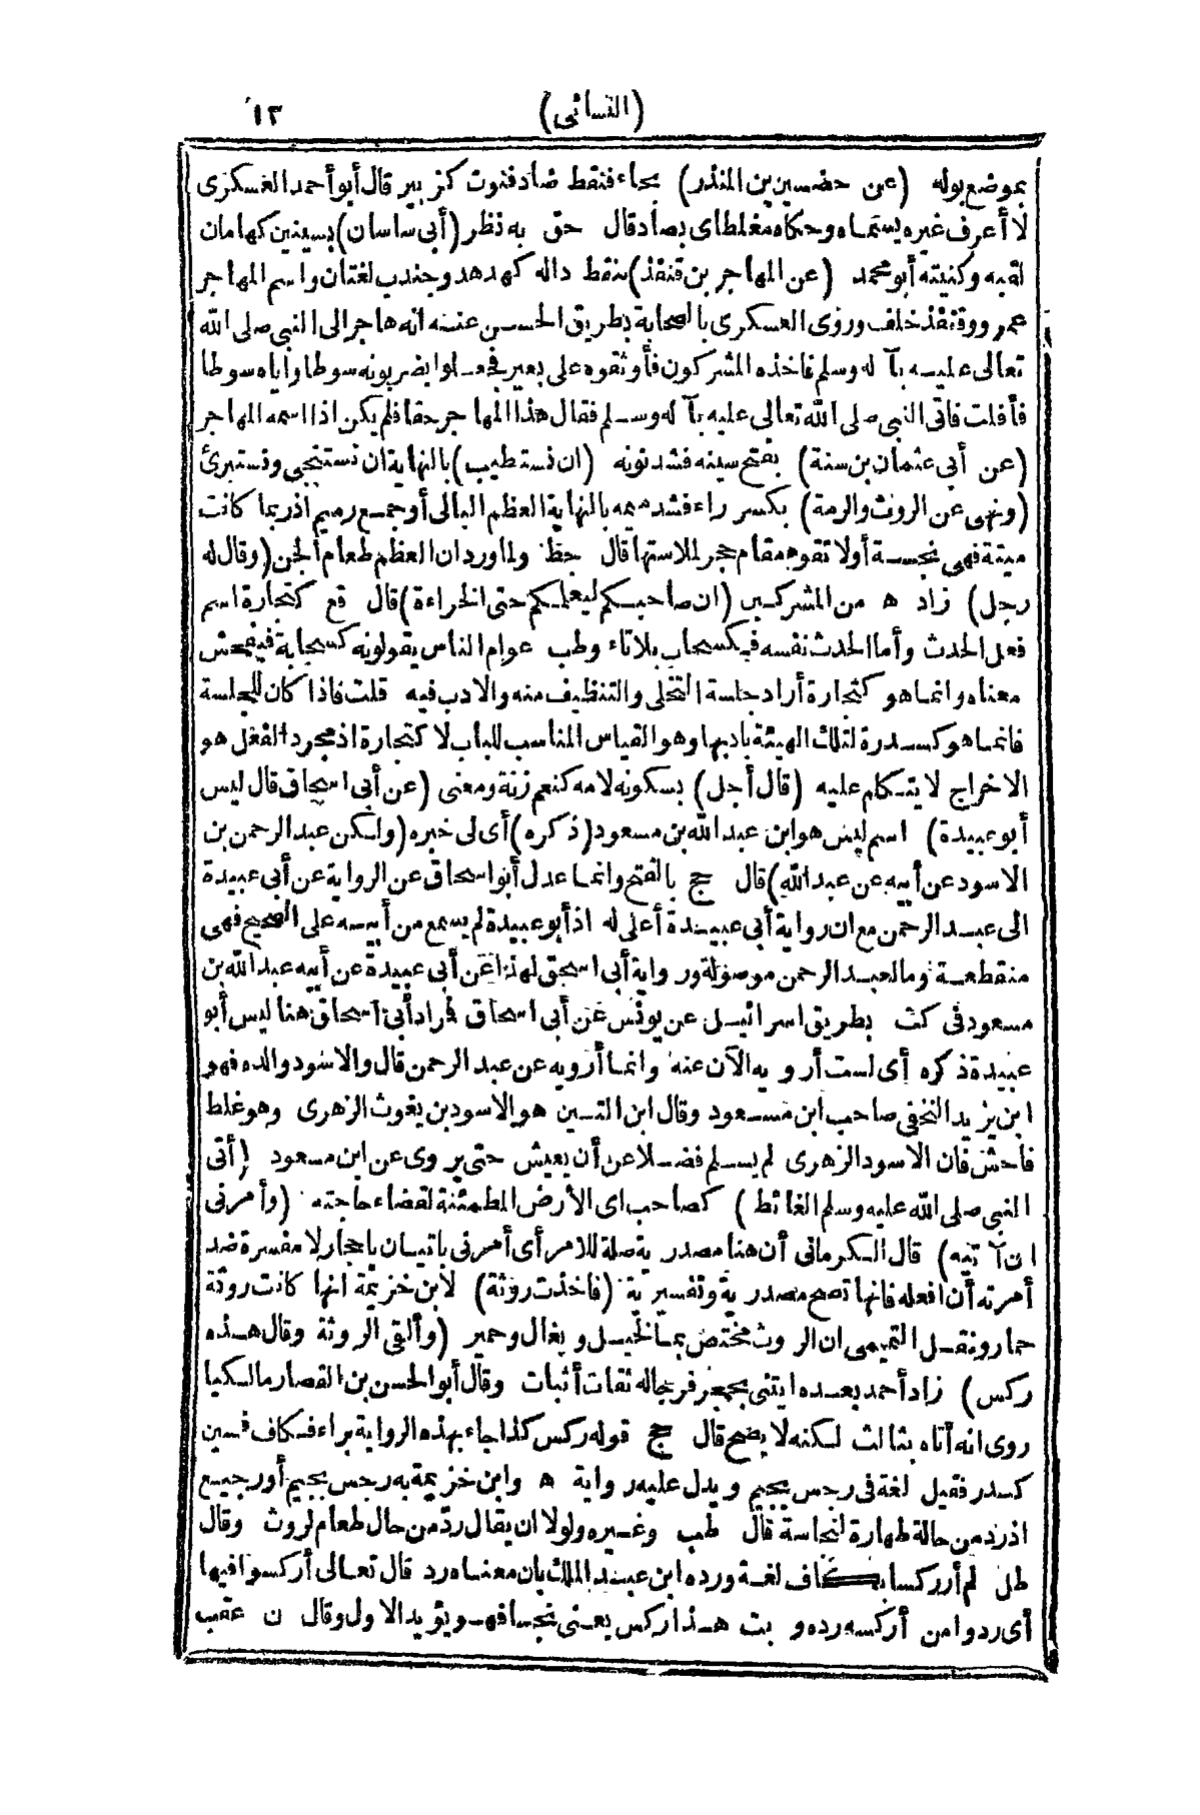 (النسائى) ١٣
بموضع بوله (عن حضين بن المنذر) بحاء فنقط ضاد فنوت كزبير قال أبو أحمد العسكرى
لا أعرف غيره يسمى به وحكاه مغلطاى بصاد قال حق به نظر (أبى ساسان) بسينين كهامان
لقبه وكنيته أبو محمد (عن المهاجر بن قنفذ) بنقط داله كهدهد وجندب لغتان واسم المهاجر
عمرو وقنفذ خلف وروى العسكرى بالصحابة بطريق الحسن عنه انه هاجر الى النبى صلى الله
تعالى عليه بآ له وسلم فاخذه المشركون فأوثقوه على بعير فجعلوا يضربونه سوطا واياه سوطا
فأفلت فاتى النبى صلى الله تعالى عليه بآ له وسلم فقال هذا المهاجر حقا فلم يكن اذا اسمه المهاجر
(عن أبى عثمان بن سنة) بفتح سينه فشد نونه (ان نستطيب) بالنهاية ان نستنجى ونستبرئ
(ونهى عن الروث والرمة) بكسر راء فشد ميمه بالنهاية العظم البالى أو جمع رميم اذ ربما كانت
ميتة فهى نجسة أو لا تقوم مقام حجر لملاستها قال حظ ولما ورد ان العظم طعام الجن (وقال له
رجل) زاد ه من المشركين (ان صاحبكم ليعلمكم حتى الخراءة) قال قع كتجارة اسم
فعل الحدث وأما الحدث نفسه فكسحاب بلا تاء وطب عوام الناس يقولونه كسحابة فيفحش
معناه وانما هو كتجارة أراد جلسة التخلى والتنظيف منه والادب فيه قلت فاذا كان للجلسة
فانما هو كسدرة لتلك الهيئة بادبها وهو القياس المناسب للباب لا كتجارة اذ مجرد الفعل هو
الاخراج لا يتكلم عليه (قال أجل) بسكونه لامه كنعم زنة ومعنى (عن أبى اسحاق قال ليس
أبو عبيدة) اسم ليس هو ابن عبد الله بن مسعود (ذكره) أى لى خبره (ولكن عبد الرحمن بن
الاسود عن أبيه عن عبد الله) قال حج بالفتح وانما عدل أبو اسحاق عن الرواية عن أبى عبيدة
الى عبد الرحمن مع ان رواية أبى عبيدة أعلى له اذ أبو عبيدة لم يسمع من أبيه على الصحيح فهى
منقطعة وما لعبد الرحمن موصولة ورواية أبى اسحق لهذا عن أبى عبيدة عن أبيه عبد الله بن
مسعود فى كت بطريق اسرائيل عن يونس عن أبى اسحاق فمراد أبى اسحاق هنا ليس أبو
عبيدة ذكره أى لست أرويه الآن عنه وانما أرويه عن عبد الرحمن قال والاسود والده فهو
ابن يزيد النخعى صاحب ابن مسعود وقال ابن التين هو الاسود بن يغوث الزهرى وهو غلط
فاحش فان الاسود الزهرى لم يسلم فضلا عن أن يعيش حتى يروى عن ابن مسعود (أتى
النبى صلى الله عليه وسلم الغائط) كصاحب اى الأرض المطمئنة لقضاء حاجته (وأمرنى
ان آتيه) قال الكرمانى أن هنا مصدرية صلة للامر أى أمرنى باتيان باحجار لا مفسرة ضد
أمرته أن افعله فانها تصح مصدرية وتفسيرية (فاخذت روثة) لابن خزيمة انها كانت روثة
حمار ونقل التميمى ان الروث مختص بما لخيل وبغال وحمير (وألقى الروثة وقال هذه
ركس) زاد أحمد بعده ايتنى بحجر فرجاله ثقات أثبات وقال أبو الحسن بن القصار مالكيا
روى انه أتاه بثالث لكنه لا يصح قال حج قوله ركس كذا جاء بهذه الرواية براء فكاف فسين
كسدر فقيل لغة فى رجس بجيم ويدل عليه رواية ه وابن خزيمة به رجس بجيم أو رجيع
اذ رد من حالة طهارة لنجاسة قال طب وغيره ولولا ان يقال رد من حال طعام لروث وقال
طل لم أر ركسا بكاف لغة ورده ابن عبد الملك بان معناه رد قال تعالى أركسوا فيها
أى ردوا من أركسه رده و بت هذا ركس يعنى نجسا فهو يؤيد الاول وقال ن عقب